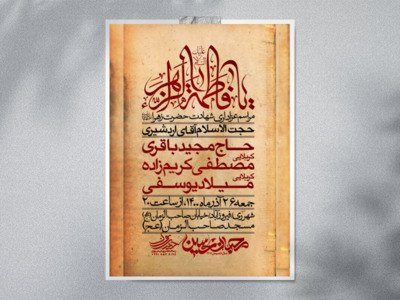 یا فاطمة الزهراء
مراسم عزاداری شهادت حضرت زهرا (س)
حجت الاسلام آقای اردشیری
حاج مجید باقری
کربلایی مصطفی کریم زاده
کربلایی میلاد یوسفی
جمعه ۲۶ آذر ماه ۱۴۰۰، از ساعت ۲۰
شهرری، فیروزآباد، خیابان صاحب الزمان (عج)
مسجد صاحب الزمان (عج)